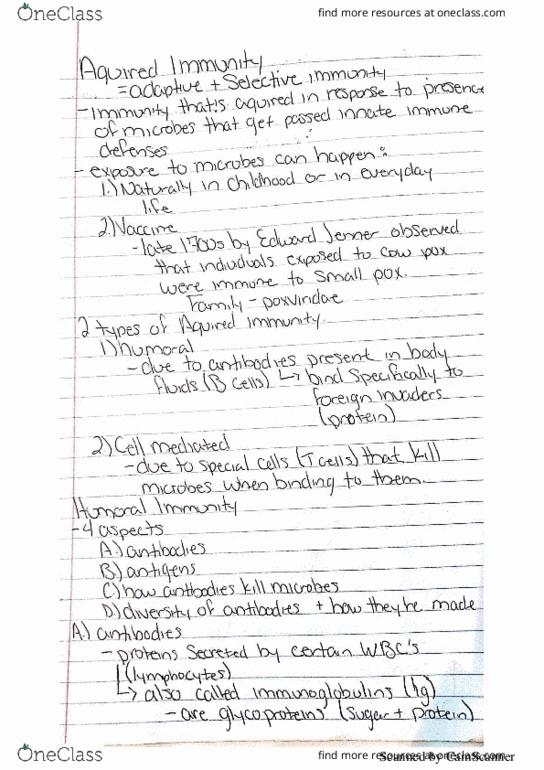 OneClass
find more resources at oneclass.com
Aquired Immunity
= adaptive + selective immunity
- immunity that's aquired in response to presence
of microbes that get passed innate immune
defenses
- exposure to microbes can happen:
1.) Naturally in childhood or in everyday
life
2.) Vaccine
- late 1700s by Edward Jenner observed
that individuals exposed to cow pox
were immune to small pox.
Family - poxviridae
2 types of Aquired immunity.
1) humoral
- due to antibodies present in body
fluids (B cells) ↳ bind specifically to
foreign invaders
(protein)
2) Cell mediated
- due to special cells (T cells) that kill
microbes when binding to them.
Humoral Immunity
- 4 aspects
A.) antibodies
B.) antigens
C.) how antibodies kill microbes
D.) diversity of antibodies + how they're made
A.) antibodies
- proteins secreted by certain WBC's
(lymphocytes)
↳ also called immunoglobulins (Ig)
- are glycoproteins (sugar + protein)
OneClass
find more resources at oneclass.com
Scanned by CamScanner